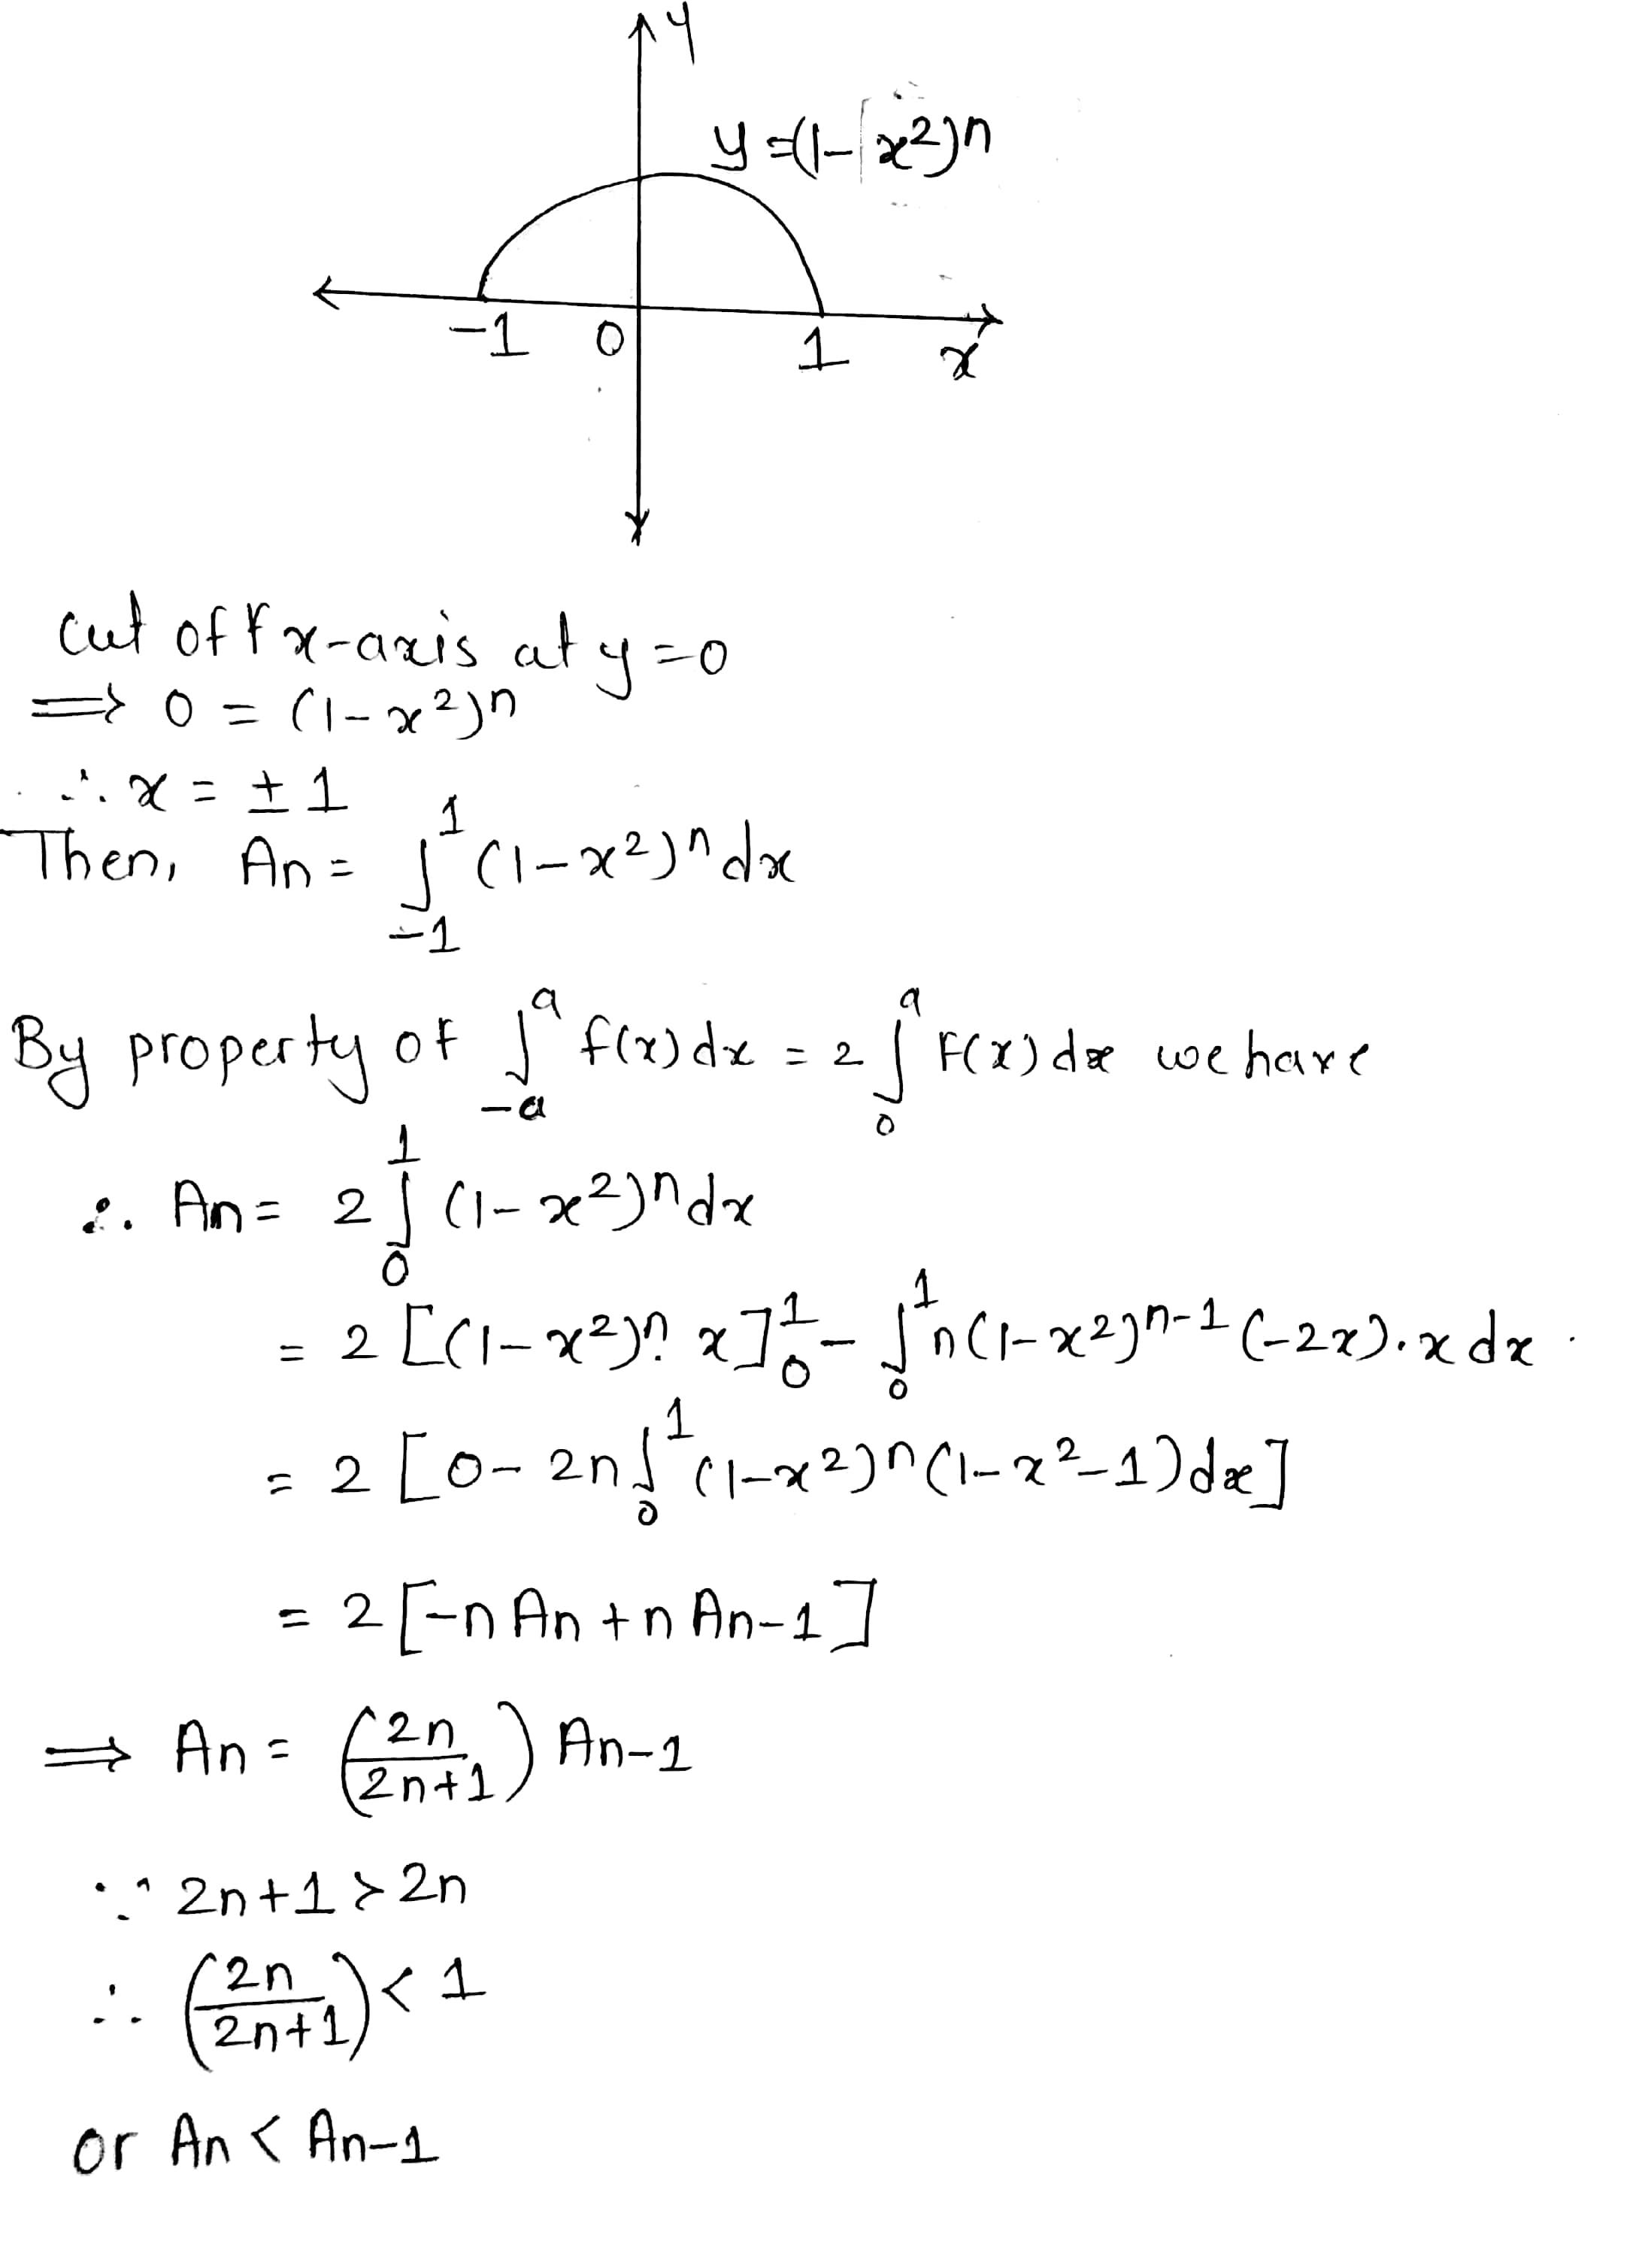 y
y=(1-x²)ⁿ
-1 0 1 x
cut off x-axis at y=0
⟹ 0 = (1-x²)ⁿ
∴ x = ± 1
Then, An = ∫₋₁¹ (1-x²)ⁿ dx
By property of ∫₋ₐᵃ f(x) dx = 2 ∫₀ᵃ F(x) dx we have
∴ An = 2 ∫₀¹ (1-x²)ⁿ dx
= 2 [(1-x²)ⁿ. x]₀¹ - ∫₀¹ n(1-x²)ⁿ⁻¹ (-2x).x dx
= 2 [0 - 2n ∫₀¹ (1-x²)ⁿ (1-x²-1) dx]
= 2 [-n An + n An-1]
⟹ An = (2n/2n+1) An-1
∵ 2n+1 > 2n
∴ (2n/2n+1) < 1
or An < An-1